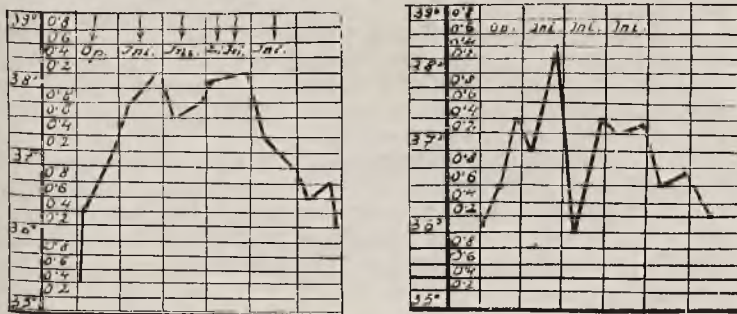 39° 0·8
0·6
0·4 Op. Inl. Inl. In. In. Inl.
0·2
38°
0·8
0·6
0·4
0·2
37°
0·8
0·6
0·4
0·2
36°
0·8
0·6
0·4
0·2
35°
39° 0·8
0·6 Op. Inl. Inl. Inl.
0·4
0·2
38°
0·8
0·6
0·4
0·2
37°
0·8
0·6
0·4
0·2
36°
0·8
0·6
0·4
0·2
35°